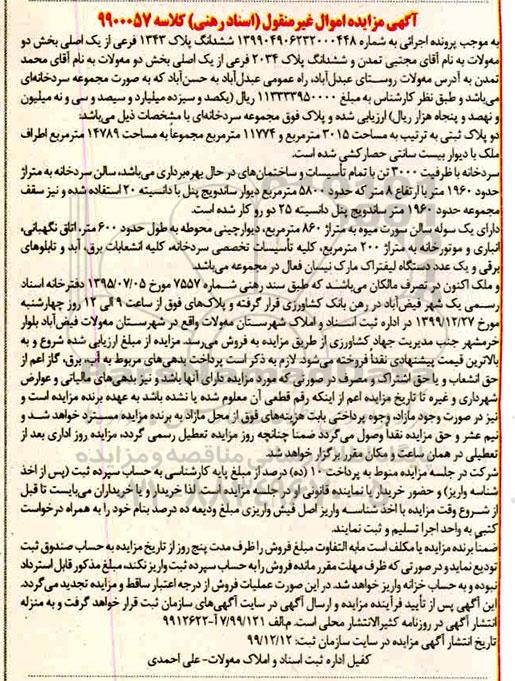 آگهی مزایده اموال غیرمنقول (اسناد رهنی) کلاسه ۹۹۰۰۰۵۷
به موجب پرونده اجرائی به شماره ۱۳۹۹۰۴۹۰۶۲۳۲۰۰۰۴۴۸ ششدانگ پلاک ۱۳۴۳ فرعی از یک اصلی بخش دو
مه‌ولات به نام آقای مجتبی تمدن و ششدانگ پلاک ۲۰۳۴ فرعی از یک اصلی بخش دو مه‌ولات به نام آقای محمد
تمدن به آدرس مه‌ولات روستای عبدل‌آباد، راه عمومی عبدل‌آباد به حسن‌آباد که به صورت مجموعه سردخانه‌ای
می‌باشد و طبق نظر کارشناس به مبلغ ۱۱۳۳۳۳۹۵۰۰۰۰ ریال (یکصد و سیزده میلیارد و سیصد و سی و نه میلیون
و نهصد و پنجاه هزار ریال) ارزیابی شده و پلاک فوق مجموعه سردخانه‌ای با مشخصات ذیل می‌باشد:
دو پلاک ثبتی به ترتیب به مساحت ۳۰۱۵ مترمربع و ۱۱۷۷۴ مترمربع مجموعاً به مساحت ۱۴۷۸۹ مترمربع اطراف
ملک با دیوار بیست سانتی حصارکشی شده است.
سردخانه با ظرفیت ۳۰۰۰ تن با تمام تأسیسات و ساختمان‌های در حال بهره‌برداری می‌باشد، سالن سردخانه به متراژ
حدود ۱۹۶۰ متر با ارتفاع ۸ متر که حدود ۵۸۰۰ مترمربع دیوار ساندویچ پنل با دانسیته ۲۰ استفاده شده و نیز سقف
مجموعه حدود ۱۹۶۰ متر ساندویچ پنل دانسیته ۲۵ دو رو کار شده است.
دارای یک سوله سالن سورت میوه به متراژ ۸۶۰ مترمربع، دیوارچینی محوطه به طول حدود ۶۰۰ متر، اتاق نگهبانی،
انباری و موتورخانه به متراژ ۲۰۰ مترمربع، کلیه تأسیسات تخصصی سردخانه، کلیه انشعابات برق، آبد و تابلوهای
برقی و یک عدد دستگاه لیفتراک مارک نیسان فعال در مجموعه می‌باشد.
و ملک اکنون در تصرف مالکان می‌باشند که طبق سند رهنی شماره ۷۵۵۷ مورخ ۱۳۹۵/۰۷/۰۵ دفترخانه اسناد
رسمی یک شهر فیض‌آباد در رهن بانک کشاورزی قرار گرفته و پلاک‌های فوق از ساعت ۹ الی ۱۲ روز چهارشنبه
مورخ ۱۳۹۹/۱۲/۲۷ در اداره ثبت اسناد و املاک شهرستان مه‌ولات واقع در شهرستان مه‌ولات فیض‌آباد بلوار
خرمشهر جنب مدیریت جهاد کشاورزی از طریق مزایده به فروش می‌رسد. مزایده از مبلغ ارزیابی شده شروع و به
بالاترین قیمت پیشنهادی نقداً فروخته می‌شود. لازم به ذکر است پرداخت بدهی‌های مربوط به آب، برق، گاز اعم از
حق انشعاب و یا حق اشتراک و مصرف در صورتی که مورد مزایده دارای آنها باشد و نیز بدهی‌های مالیاتی و عوارض
شهرداری و غیره تا تاریخ مزایده اعم از اینکه رقم قطعی آن معلوم شده یا نشده باشد به عهده برنده مزایده است و
نیز در صورت وجود مازاد، وجوه پرداختی بابت هزینه‌های فوق از محل مازاد به برنده مزایده مسترد خواهد شد و
نیم عشر و حق مزایده نقداً وصول می‌گردد ضمناً چنانچه روز مزایده تعطیل رسمی گردد، مزایده روز اداری بعد از
تعطیلی در همان ساعت و مکان مقرر برگزار خواهد شد.
شرکت در جلسه مزایده منوط به پرداخت ۱۰ (ده) درصد از مبلغ پایه کارشناسی به حساب سپرده ثبت (پس از اخذ
شناسه واریز) و حضور خریدار یا نماینده قانونی او در جلسه مزایده است. لذا خریدار و یا خریداران می‌بایست تا قبل
از شروع وقت مزایده با اخذ شناسه واریز اصل فیش واریزی مبلغ ودیعه ده درصد بنام خود را به همراه درخواست
کتبی به واحد اجرا تسلیم و ثبت نمایند.
ضمناً برنده مزایده یا مکلف است مابه التفاوت مبلغ فروش را ظرف مدت پنج روز از تاریخ مزایده به حساب صندوق ثبت
تودیع نماید و در صورتی که ظرف مهلت مقرر مانده فروش را به حساب سپرده ثبت واریز نکند، مبلغ مذکور قابل استرداد
نبوده و به حساب خزانه واریز خواهد شد. در این صورت عملیات فروش از درجه اعتبار ساقط و مزایده تجدید می‌گردد.
این آگهی پس از تأیید فرآینده مزایده و ارسال آگهی در سایت آگهی‌های سازمان ثبت قرار خواهد گرفت و به منزله
انتشار آگهی در روزنامه کثیرالانتشار محلی است. م‌الف ۷/۹۹/۱۲۱ آ-۹۹۱۲۶۲۲
تاریخ انتشار آگهی مزایده در سایت سازمان ثبت: ۹۹/۱۲/۱۲
کفیل اداره ثبت اسناد و املاک مه‌ولات- علی احمدی